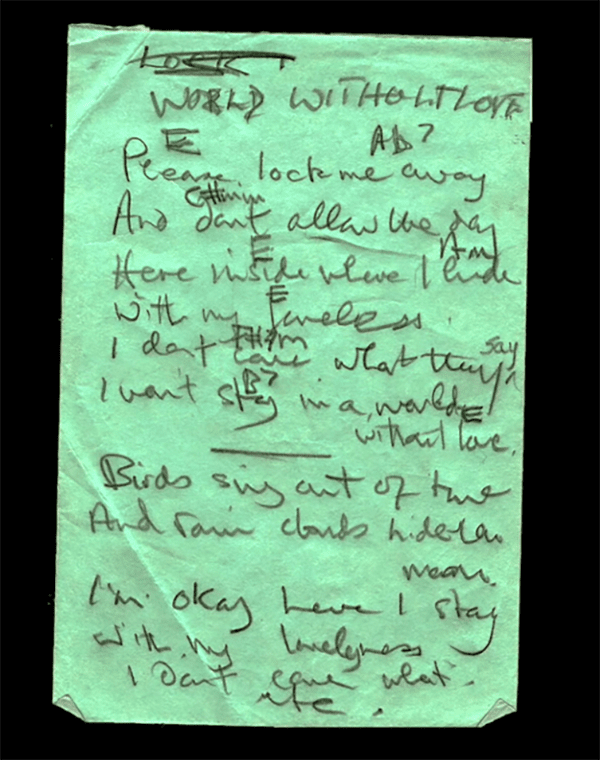 LOCK
WORLD WITHOUT LOVE
E Ab7
Please lock me away
C#min
And dont allow the day
E Am
Here inside where I hide
E
with my loneless.
F#m
I dont care what they say
B7
I wont stay in a world E
without love.
Birds sing out of tune
And rain clouds hide the
moon.
I'm okay here I stay
with my lonelyness
I Dont care what.
etc.